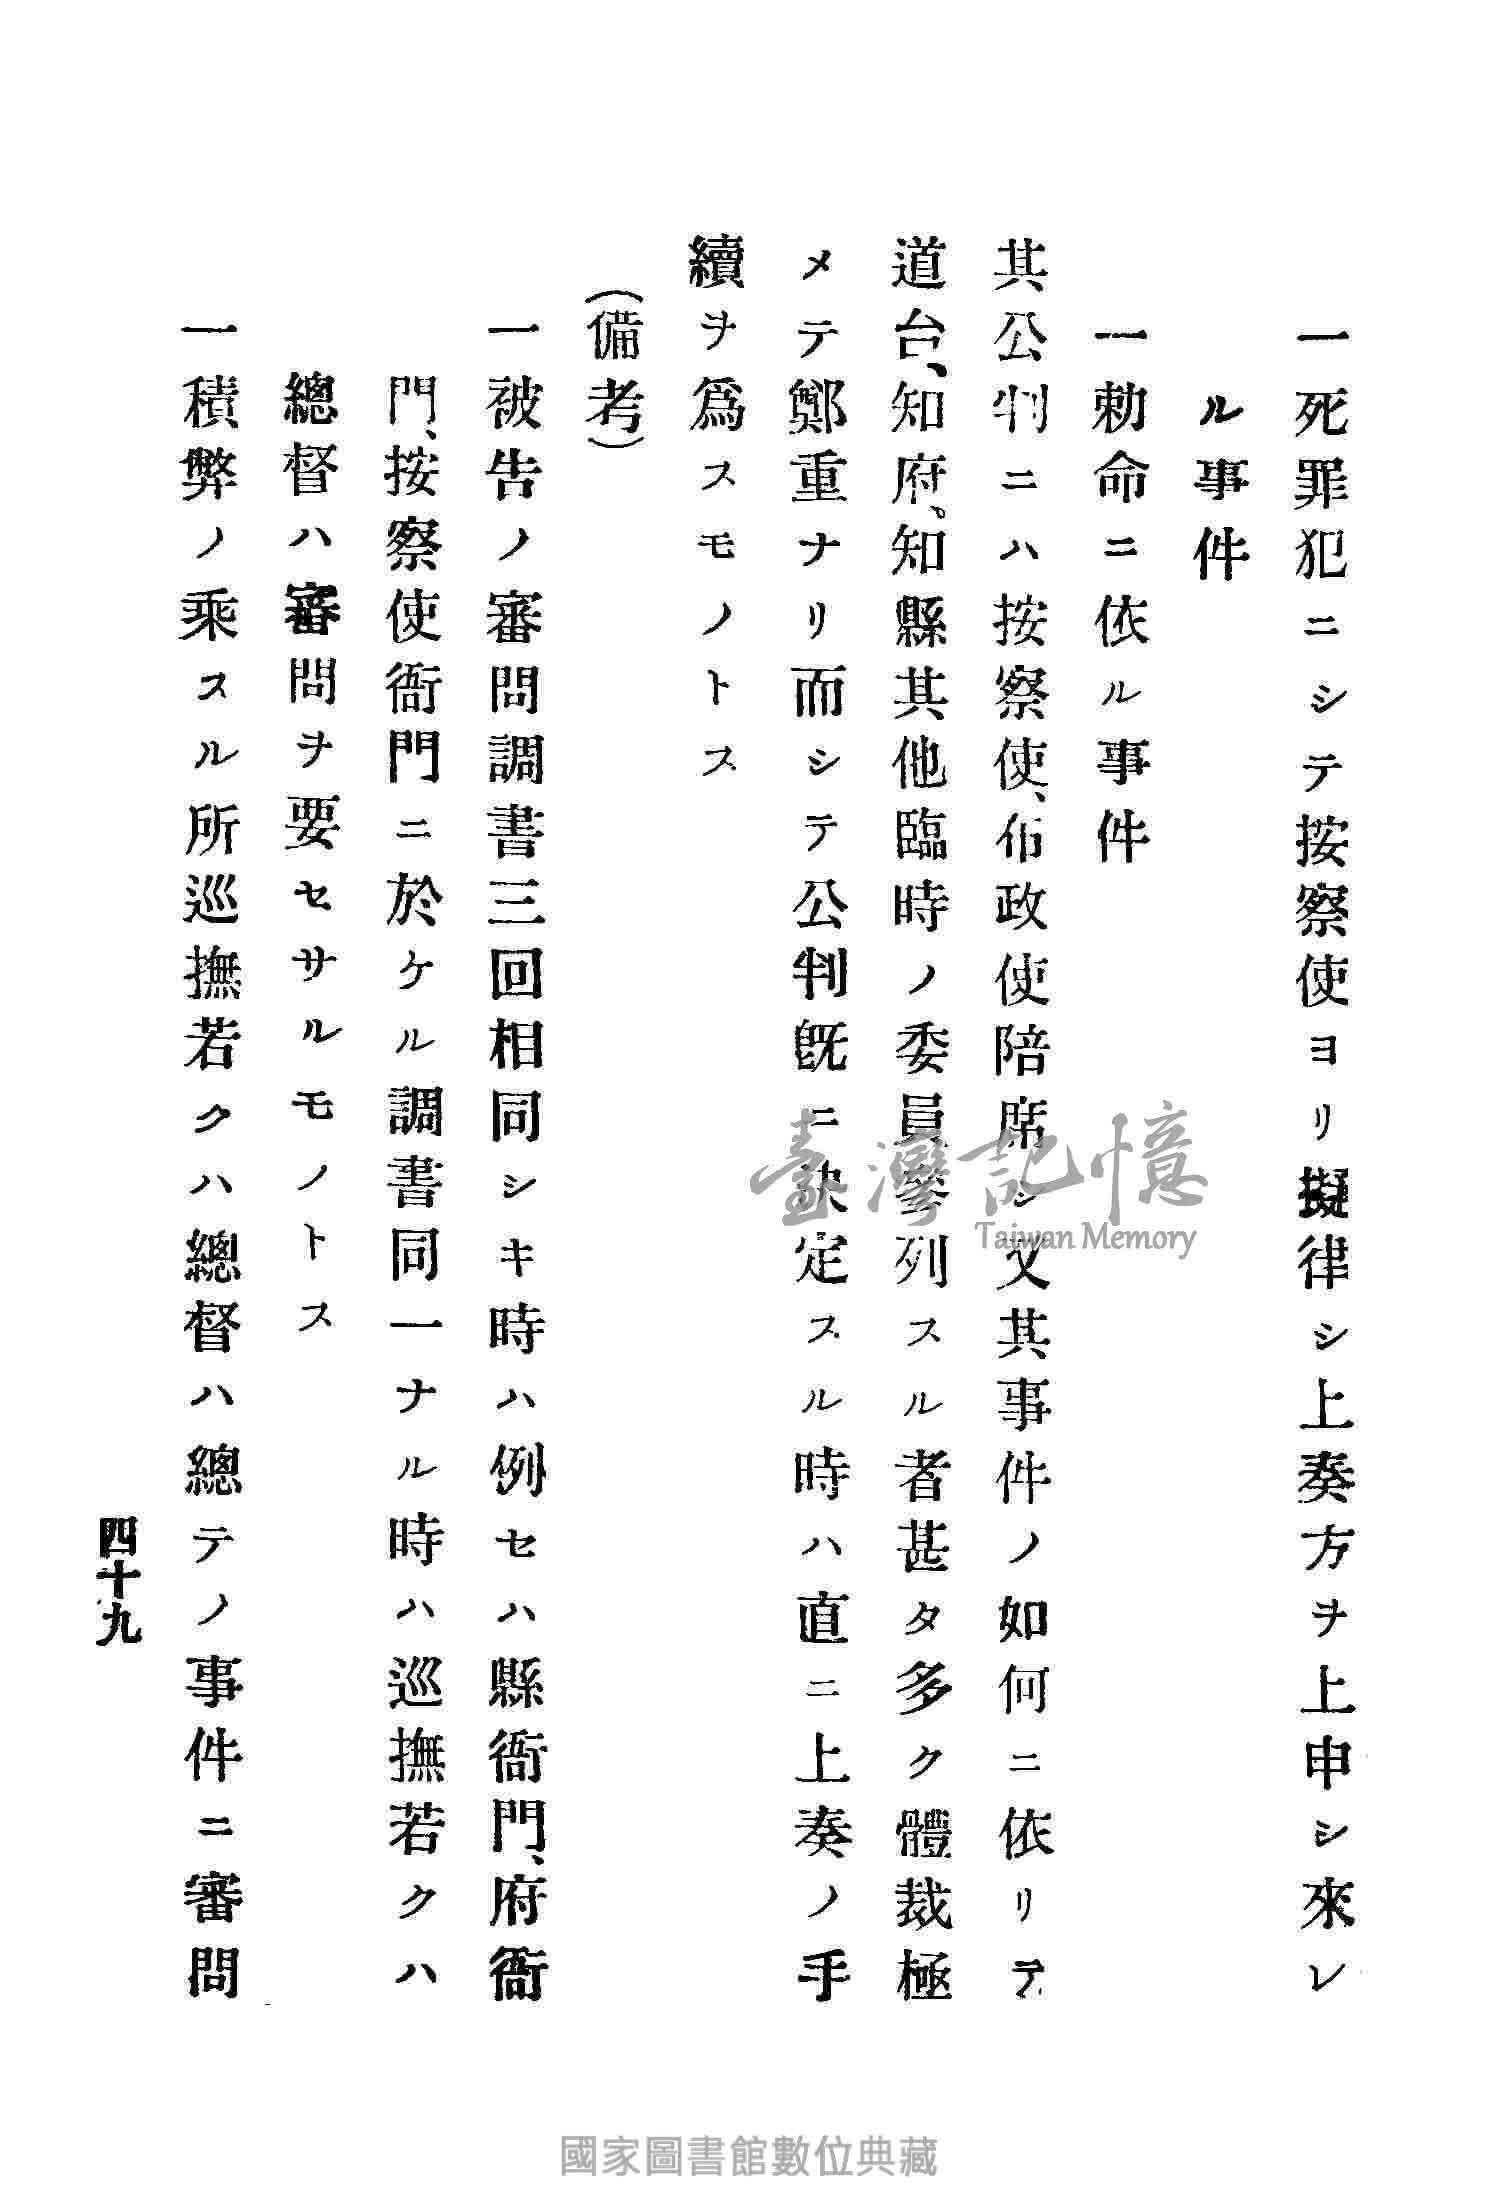 一死罪犯ニシテ按察使ヨリ擬律シ上奏方ヲ上申シ來レ
ル事件
一勅命ニ依ル事件
其公判ニハ按察使、布政使陪席シ又其事件ノ如何ニ依リテ
道台、知府、知縣其他臨時ノ委員參列スル者甚タ多ク體裁極
メテ鄭重ナリ而シテ公判旣ニ決定スル時ハ直ニ上奏ノ手
續ヲ爲スモノトス
(備考)
一被告ノ審問調書三回相同シキ時ハ例セハ縣衙門、府衙
門、按察使衙門ニ於ケル調書同一ナル時ハ巡撫若クハ
總督ハ審問ヲ要セサルモノトス
一積弊ノ乘スル所巡撫若クハ總督ハ總テノ事件ニ審問
四十九
臺灣記憶
Taiwan Memory
國家圖書館數位典藏